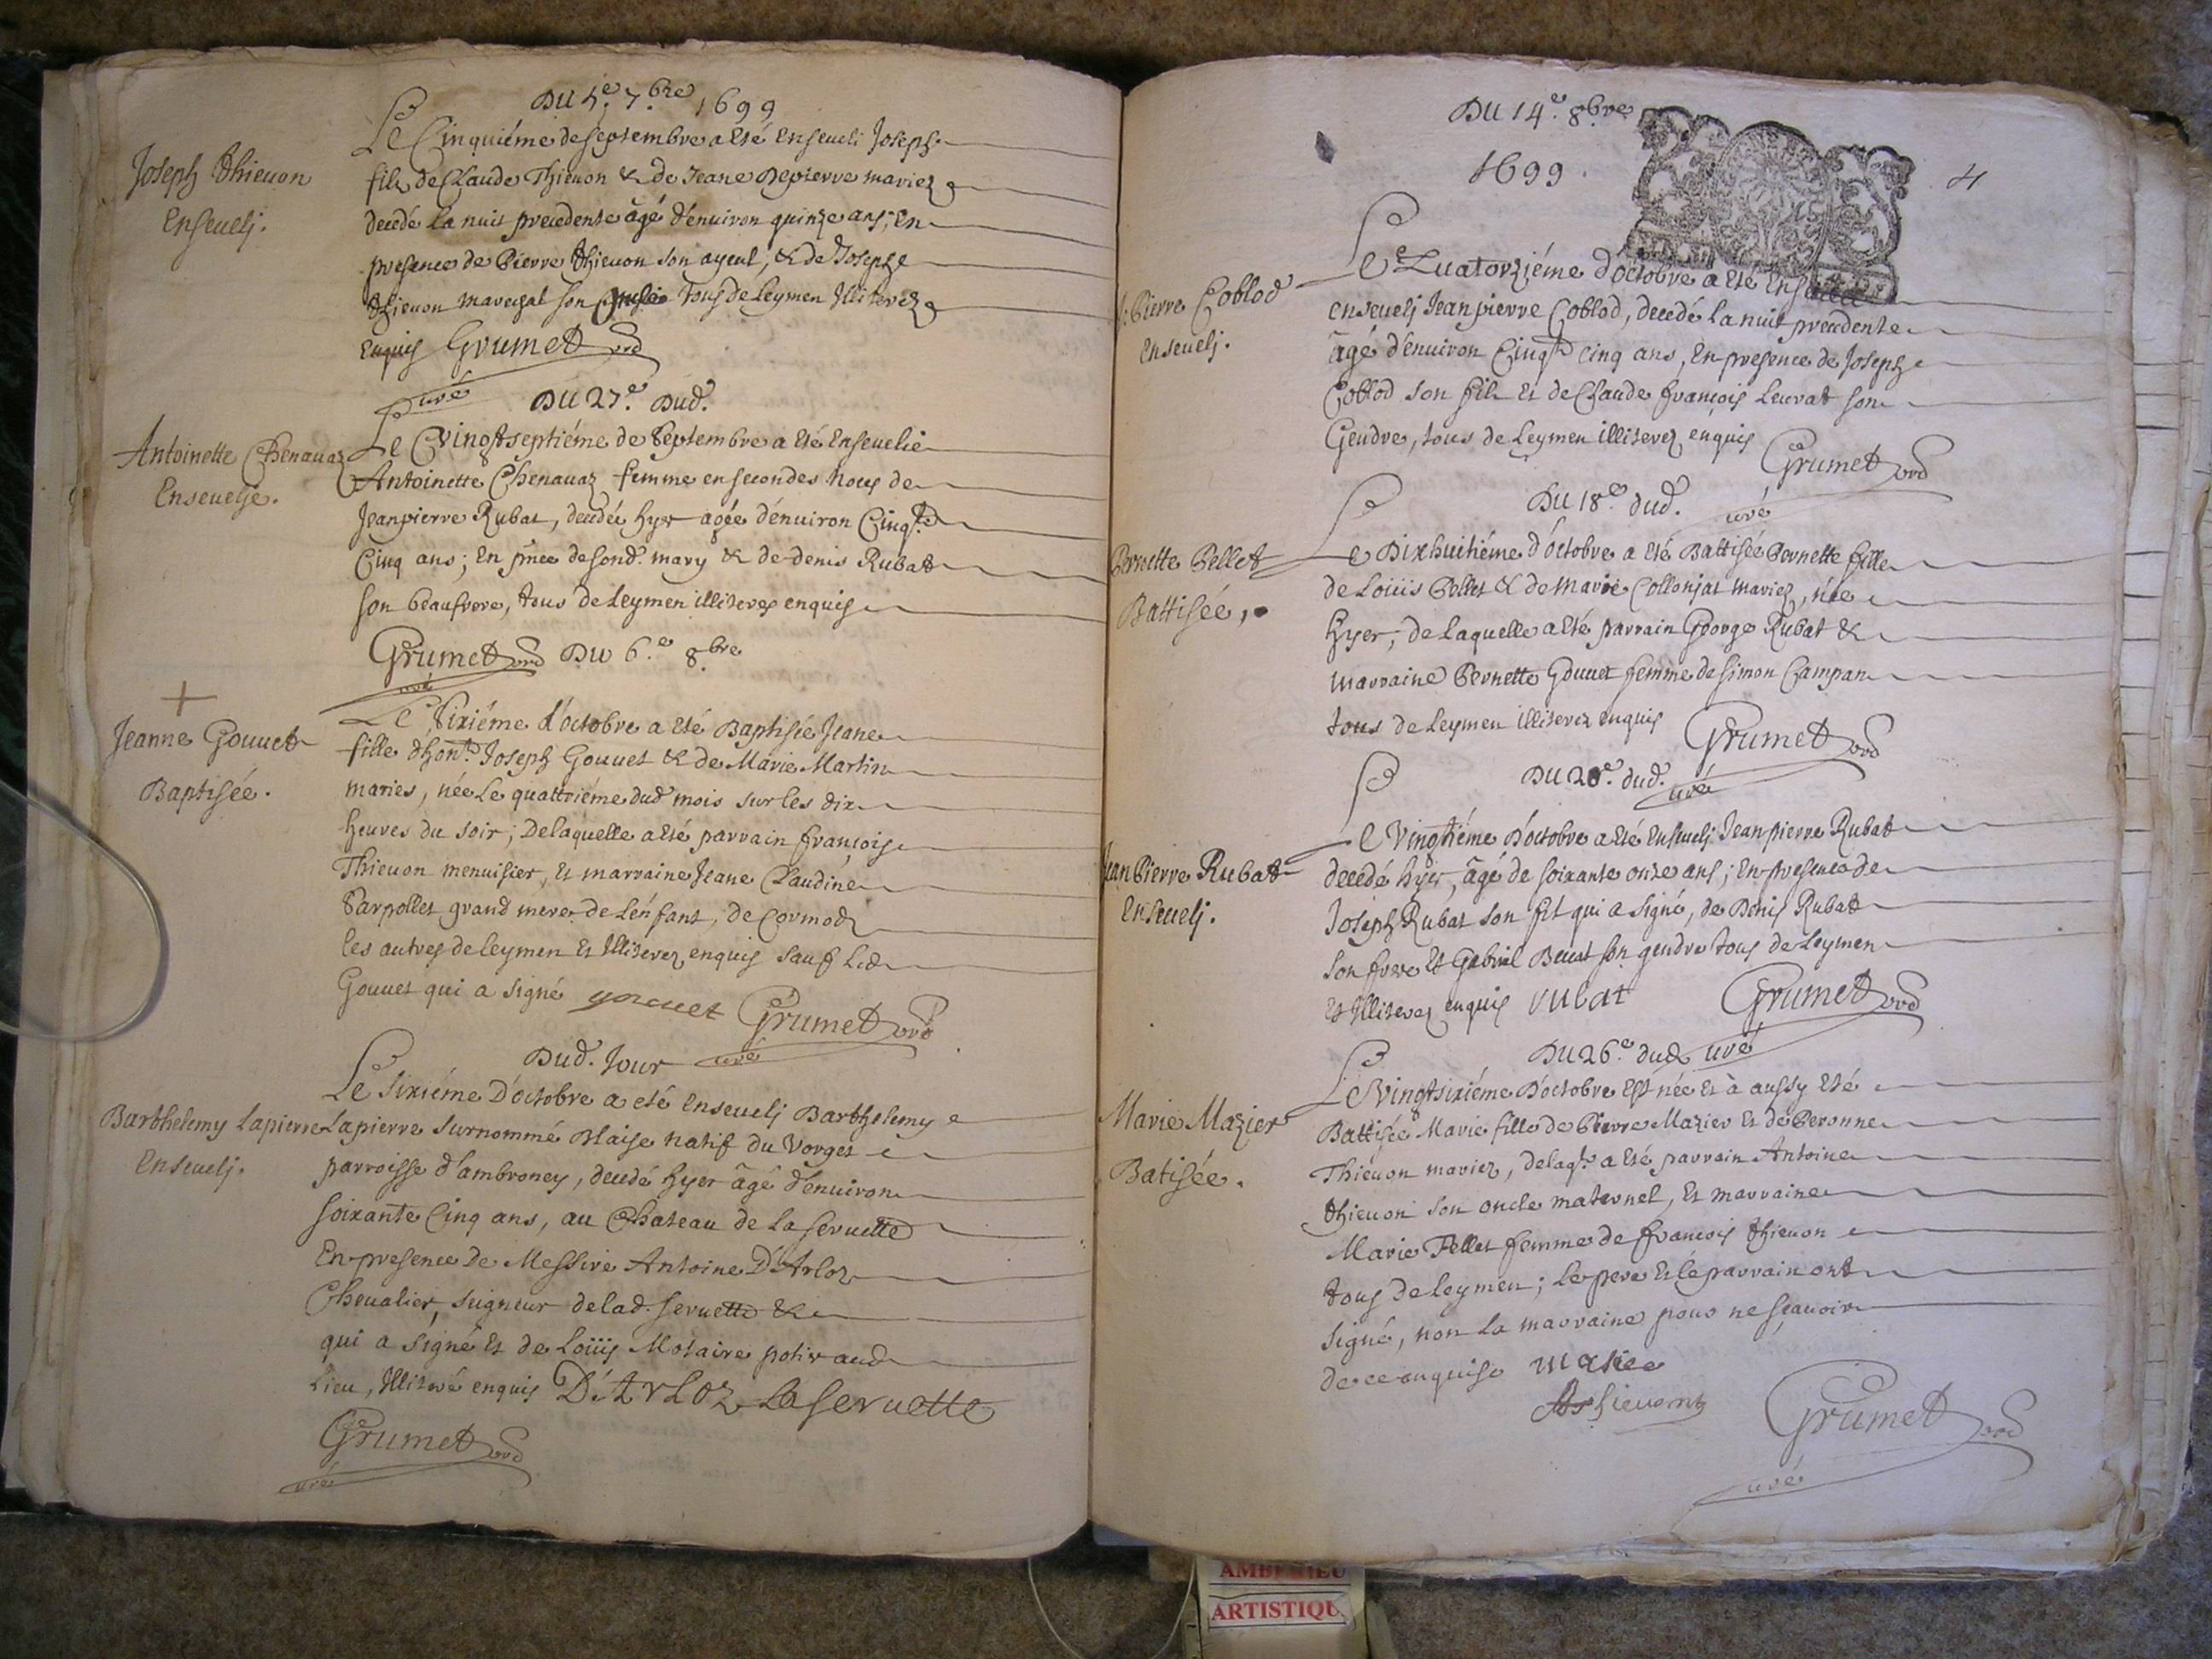 Du 5.e 7.bre 1699
Joseph Thieuon
Enseuelj.
Le Cinquiéme de septembre a Eté Enseueli Joseph
fils de Claude Thieuon & de Jeane Depierre mariez
decedé la nuit precedente âgé d'énuiron quinze ans; En
presence de Pierre thieuon son ayeul, & de Joseph
thieuon marechal son tous de Leymen Illiterez
Enquis Grumet
curé
Du 27.e Dud.
Antoinette Chenauaz
Enseuelje.
Le Vingtseptiéme de Septembre a Eté Enseuelie
Antoinette Chenauaz femme en secondes noces de
Jeanpierre Rubat, decedée hyer agée d'énuiron Cinqte
Cinq ans; En pñce de sond. mary & de denis Rubat
son beaufrere, tous de Leymen illiterez enquis
Grumet Du 6.e 8.bre
curé
+
Jeanne Gouuet
Baptisée.
Le Sixiéme d'octobre a Eté Baptisée Jeane
fille d'hon.te Joseph Gouuet & de Marie Martin
maries, née Le quattriéme dud. mois sur les dix
heures du soir; De laquelle a Eté parrain françois
Thieuon menuisier, Et marraine Jeane Claudine
Sarpollet grand mere de L'énfant, de Cormoz
les autres de leymen Et Illiterez enquis sauf Led.
Gouuet qui a signé gouuet Grumet
curé
Dud. Jour
Barthelemy Lapierre
Enseuelj.
Le Sixiéme D'octobre a eté Enseuelj Barthelemy
Lapierre surnommé Blaise natif du Vorget
parroisse d'ambroney, decedé hyer âgé d'énuiron
soixante Cinq ans, au Chateau de la seruette
En presence De Messire Antoine D'Arloz
Cheualier, seigneur de lad. seruette &
qui a signé Et de Loüis Motaire potir aud.
Lieu, Illiteré enquis D'ArLoz La seruette
Grumet
curé
Du 14.e 8.bre
1699.
4
J: Pierre Coblod
Enseuelj.
Le Quatorziéme d'óctobre a Eté
enseuelj Jeanpierre Coblod, decedé la nuit precedente
âgé d'énuiron Cinqte cinq ans, En presence de Joseph
Coblod son fils Et de Claude françois Leurat son
Gendre, tous de Leymen illiterez enquis
Grumet
curé
Du 18.e dud.
Pernette Pellet
Battisée,
Le Dixhuitiéme d'óctobre a Eté Battisée Pernette fille
de Loüis Pellet & de Marie Collonjat mariez, née
hyer; de laquelle a Eté parrain George Rubat &
marraine Pernette Gouuet femme de Simon Campan
tous de Leymen illiterez enquis Grumet
curé
Du 20.e dud.
Jean Pierre Rubat
Enseuelj.
Le Vingtiéme D'octobre a Eté Enseuelj Jean pierre Rubat
decedé hyer, âgé de soixante onze ans; En presence de
Joseph Rubat son fil qui a signé, de Denis Rubat
son frere Et Gabriel Beuat son gendre tous de Leymen
Et Illiterez enquis rubat Grumet
curé
Du 26.e dud.
Marie Mazier
Batisée.
Le Vingtsixiéme D'octobre Est née Et à aussy Eté
Battisée Marie fille de Pierre Mazier Et de Peronne
Thieuon mariez, delaq.le a Eté parrain Antoine
thieuon son oncle maternel, Et marraine
Marie Pellet femme de françois thieuon
tous de Leymen; Le pere Et le parrain ont
signé, non la marraine pour ne sçauoir
de ce enquise Masier
A thieuont Grumet
curé
AMBERIEU
ARTISTIQU